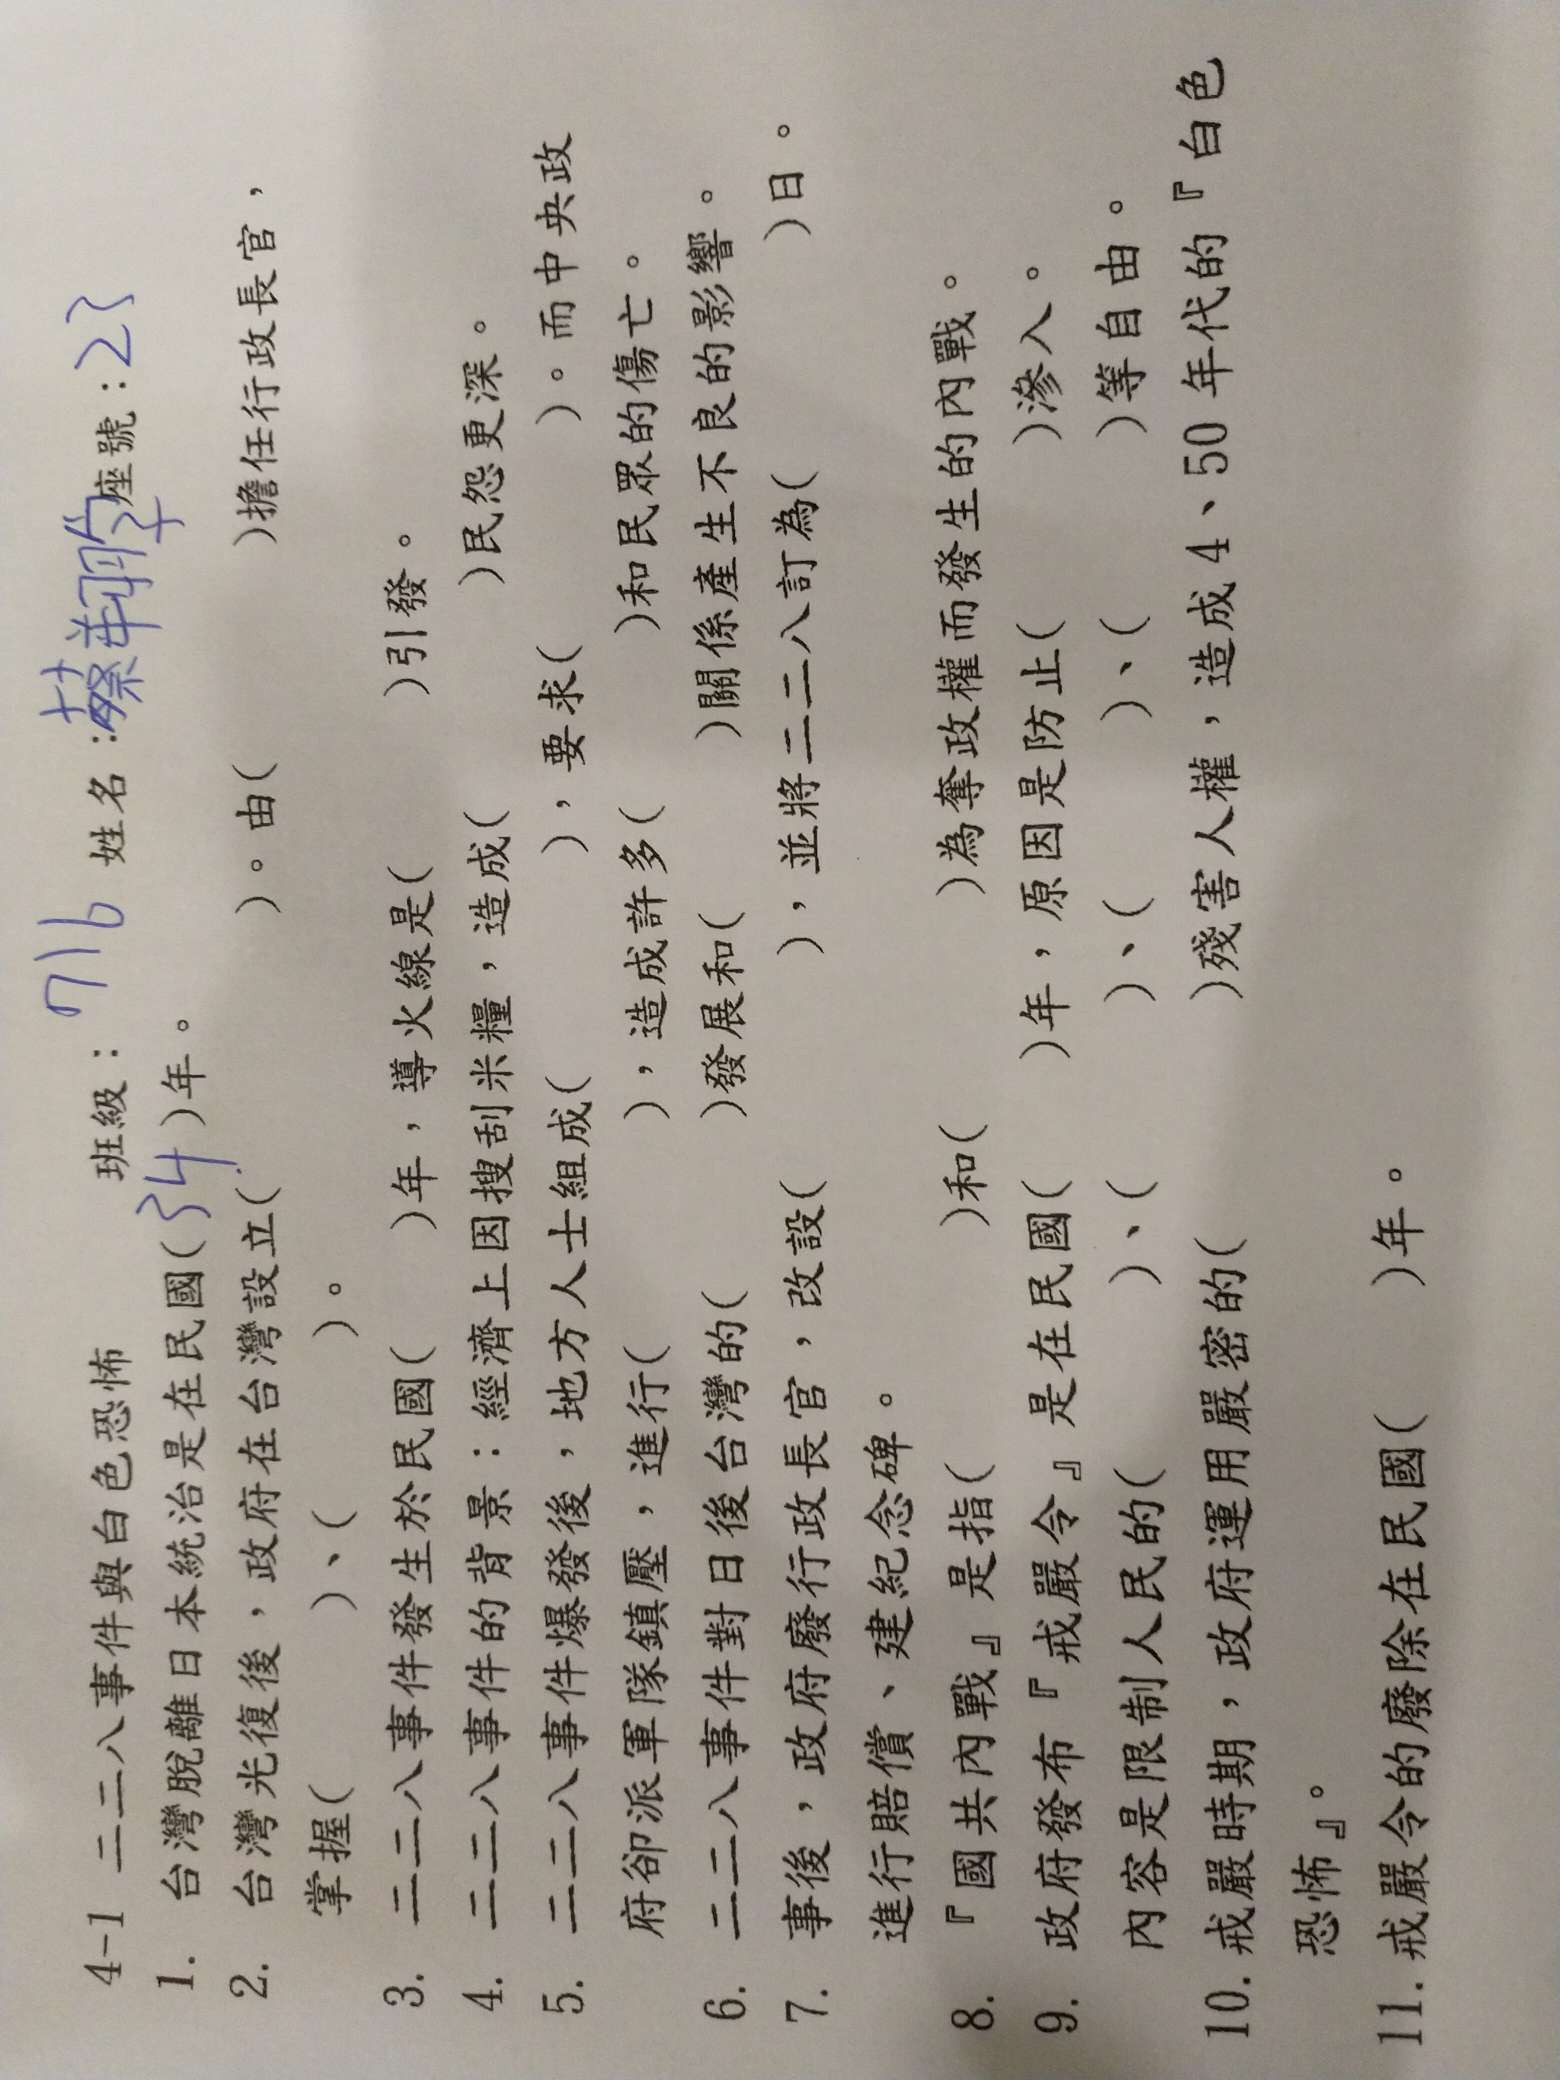 班級：716 姓名：蔡翔 座號：23
4-1 二二八事件與白色恐怖
1. 台灣脫離日本統治是在民國(34)年。
2. 台灣光復後，政府在台灣設立( )。由( )擔任行政長官，
掌握( )、( )。
3. 二二八事件發生於民國( )年，導火線是( )引發。
4. 二二八事件的背景：經濟上因搜刮米糧，造成( )民怨更深。
5. 二二八事件爆發後，地方人士組成( )，要求( )。而中央政
府卻派軍隊鎮壓，進行( )，造成許多( )和民眾的傷亡。
6. 二二八事件對日後台灣的( )發展和( )關係產生不良的影響。
7. 事後，政府廢行政長官，改設( )，並將二二八訂為( )日。
進行賠償、建紀念碑。
8. 『國共內戰』是指( )和( )為奪政權而發生的內戰。
9. 政府發布『戒嚴令』是在民國( )年，原因是防止( )滲入。
內容是限制人民的( )、( )、( )、( )等自由。
10. 戒嚴時期，政府運用嚴密的( )殘害人權，造成 4、50 年代的『白色
恐怖』。
11. 戒嚴令的廢除在民國( )年。